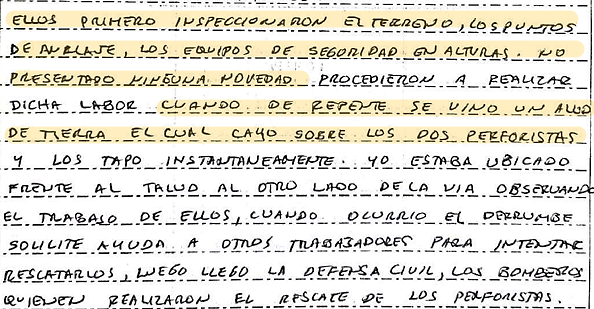 ELLOS PRIMERO INSPECCIONARON EL TERRENO, LOS PUNTOS
DE ANCLAJE, LOS EQUIPOS DE SEGURIDAD EN ALTURAS. NO
PRESENTADO NINGUNA NOVEDAD. PROCEDIERON A REALIZAR
DICHA LABOR CUANDO DE REPENTE SE VINO UN ALUD
DE TIERRA EL CUAL CAYO SOBRE LOS DOS PERFORISTAS
Y LOS TAPO INSTANTANEAMENTE. YO ESTABA UBICADO
FRENTE AL TALUD AL OTRO LADO DE LA VIA OBSERVANDO
EL TRABAJO DE ELLOS, CUANDO OCURRIO EL DERRUMBE
SOLICITE AYUDA A OTROS TRABAJADORES PARA INTENTAR
RESCATARLOS, LUEGO LLEGO LA DEFENSA CIVIL, LOS BOMBEROS
QUIENEN REALIZARON EL RESCATE DE LOS PERFORISTAS.